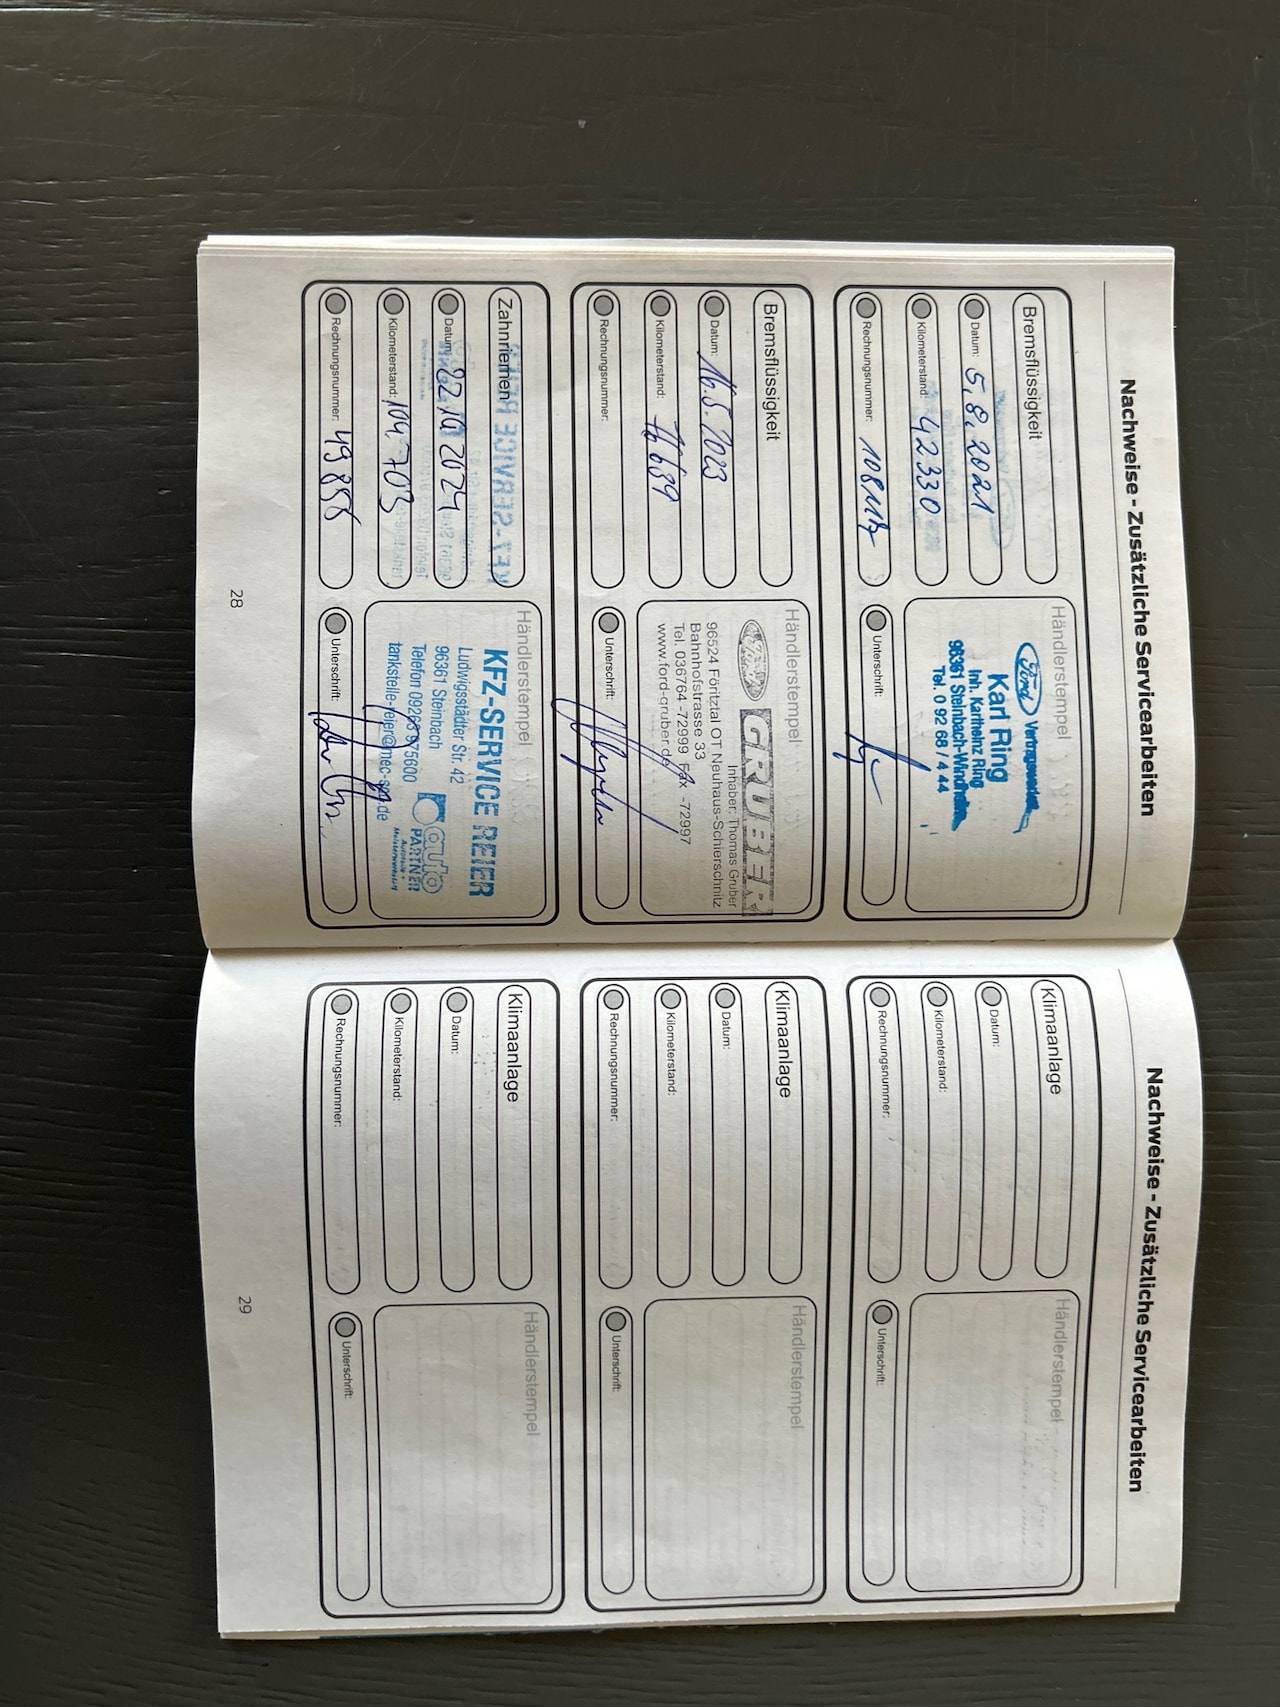 Nachweise - Zusätzliche Servicearbeiten
Bremsflüssigkeit
Datum: 5.8.2021
Kilometerstand: 42330
Rechnungsnummer:
Händlerstempel
Ford Vertragswerkstatt
Karl Ring
Inh. Karlheinz Ring
96361 Steinbach-Windheim
Tel. 0 92 68 / 4 44
Unterschrift:
Bremsflüssigkeit
Datum: 16.5.2023
Kilometerstand: 76689
Rechnungsnummer:
Händlerstempel
GRUBER
Inhaber: Thomas Gruber
96524 Föritztal OT Neuhaus-Schierschnitz
Bahnhofstrasse 33
Tel. 036764 -72999 Fax -72997
www.ford-gruber.de
Unterschrift:
Zahnriemen
Datum: 22.10.2024
Kilometerstand: 104.703
Rechnungsnummer: 49856
Händlerstempel
KFZ-SERVICE REIER
Ludwigsstädter Str. 42
96361 Steinbach
Telefon 09263 975600
auto
PARTNER
Unterschrift:
28
Nachweise - Zusätzliche Servicearbeiten
Klimaanlage
Datum:
Kilometerstand:
Rechnungsnummer:
Händlerstempel
Unterschrift:
Klimaanlage
Datum:
Kilometerstand:
Rechnungsnummer:
Händlerstempel
Unterschrift:
Klimaanlage
Datum:
Kilometerstand:
Rechnungsnummer:
Händlerstempel
Unterschrift:
29